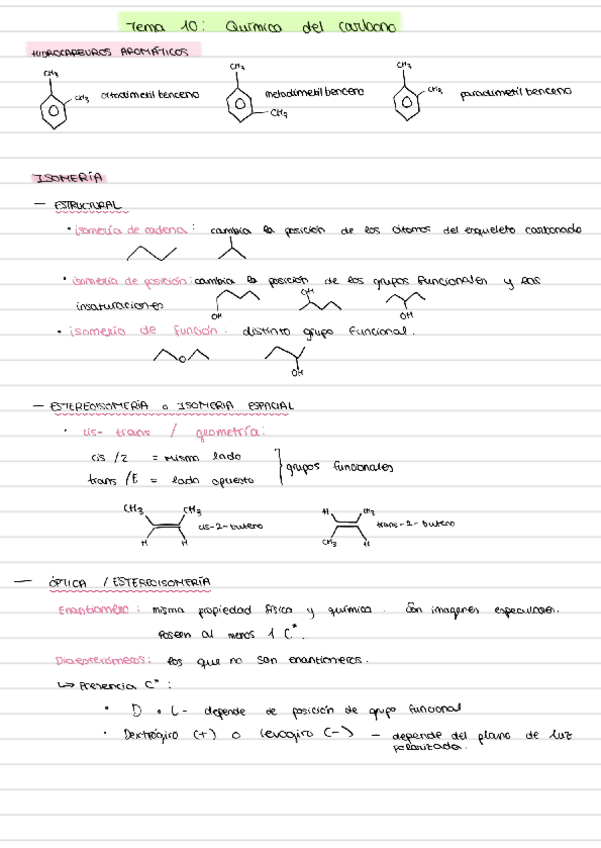 Tema 10: Química del carbono
HIDROCARBUROS AROMÁTICOS
CH3 CH3 ortodimetil benceno
CH3 CH3 metadimetil benceno
CH3 CH3 paradimetil benceno
ISOMERÍA
— ESTRUCTURAL
· isomería de cadena: cambia la posición de los átomos del esqueleto carbonado
· isomería de posición: cambia la posición de los grupos funcionales y las
insaturaciones
OH OH OH
· isomería de función: distinto grupo funcional.
O OH
— ESTEREOISOMERÍA o ISOMERIA ESPACIAL
· cis-trans / geometría:
cis /z = mismo lado
trans /E = lado opuesto
grupos funcionales
CH3 CH3 H H cis-2-buteno
H CH3 CH3 H trans-2-buteno
— ÓPTICA / ESTEREOISOMERÍA
Enantiómero: misma propiedad física y química. Son imagenes especulares.
Poseen al menos 1 C*.
Diastereómeros: los que no son enantiomeros.
↳ Presencia C*:
· D o L- depende de posición de grupo funcional
· Dextrógiro (+) o levogiro (-) — depende del plano de luz
polarizada.